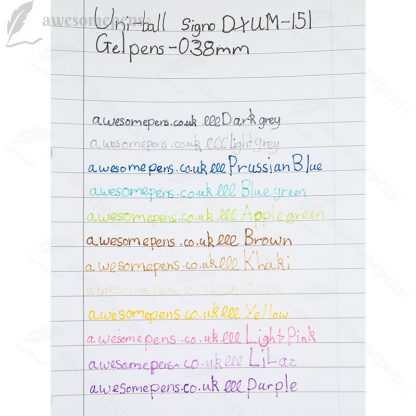 awesomepens
Uni-ball Signo DXUM-151
Gelpens-038mm
awesomepens.co.uk lll Dark grey
awesomepens.co.uk lll light grey
awesomepens.co.uk lll Prussian Blue
awesomepens.co.uk lll Blue green
awesomepens.co.uk lll Apple green
awesomepens.co.uk lll Brown
awesomepens.co.uk lll Khaki
awesomepens.co.uk lll
awesomepens.co.uk lll Yellow
awesomepens.co.uk lll Light Pink
awesomepens.co.uk lll LiLac
awesomepens.co.uk lll Purple